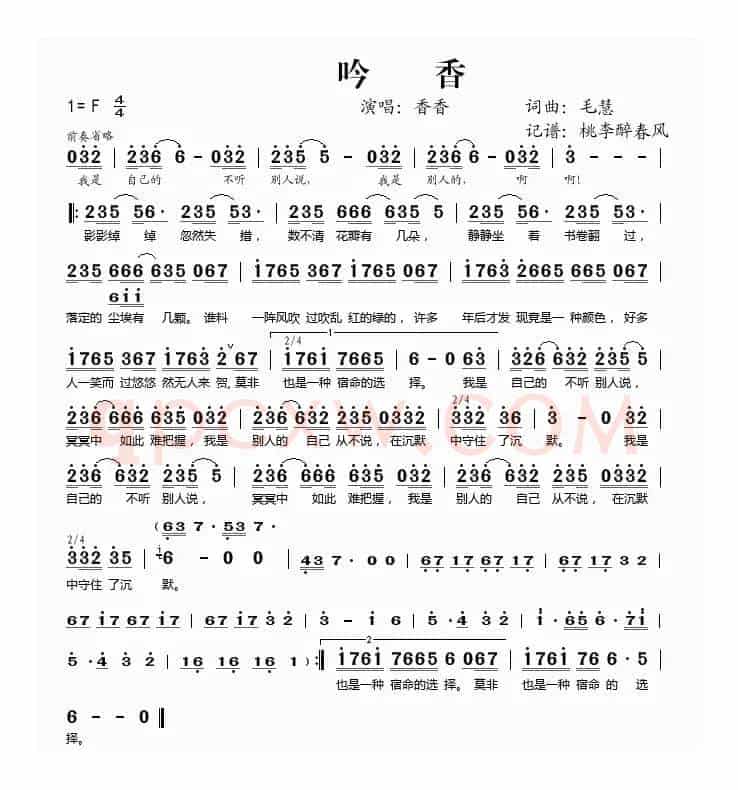 吟 香
1= F 4/4 演唱：香香 词曲：毛慧
前奏省略 记谱：桃李醉春风
032 | 236 6 - 032 | 235 5 - 032 | 236 6 - 032 | 3 - - - |
我是 自己的 不听 别人说， 我是 别人的， 啊 啊！
‖: 235 56· 235 53· | 235 666 635 5 | 235 56· 235 53· |
影影绰 绰 忽然失 措， 数不清 花瓣有 几朵， 静静坐 着 书卷翻 过，
235 666 635 067 | 1765 367 1765 067 | 1763 2665 665 035 |
611
落定的 尘埃有 几颗。谁料 一阵风吹 过吹乱 红的绿的，许多 年后才发 现竟是一 种颜色，好多
2/4 1
1765 367 1763 2 67 | 1761 7665 | 6 - 0 63 | 326 632 235 5 |
人一笑而 过悠悠 然无人来 贺，莫非 也是一种 宿命的选 择。 我是 自己的 不听 别人说，
2/4
236 666 635 032 | 236 632 235 0332 | 332 36 | 3 - 0 32 |
冥冥中 如此 难把握，我是 别人的 自己 从不说，在沉默 中守住 了沉 默。 我是
236 632 235 5 | 236 666 635 032 | 236 632 235 0332 |
自己的 不听 别人说， 冥冥中 如此 难把握，我是 别人的 自己 从不说，在沉默
(63 7· 53 7·
2/4
332 35 | 6 - 0 0 | 43 7· 0 0 | 67 17 67 17 | 67 17 3 2 |
中守住 了沉 默。
67 17 67 17 | 67 17 3 2 | 3 - 1 6 | 5· 4 3 2 | 1· 65 6· 71 |
2
5· 4 3 2 | 16 16 16 1 ) :‖ 1761 7665 6 067 | 1761 76 6· 5 |
也是一种 宿命的选 择。莫非 也是一种 宿命 的 选
6 - - 0 ‖
择。
qpcxw.COM